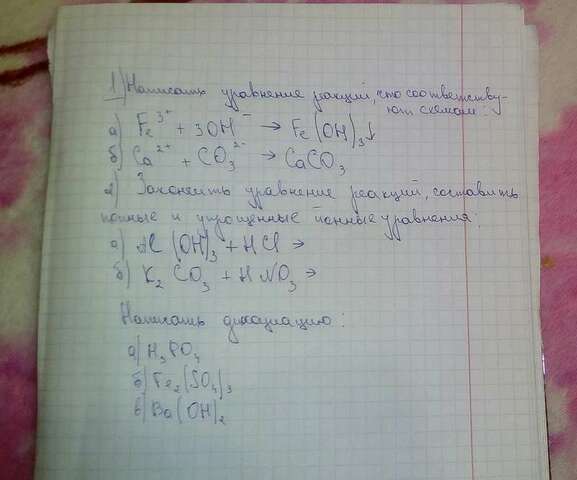 1) Написать уравнение реакций, что соответству-
ют схемам:
а) Fe³⁺ + 3OH⁻ → Fe(OH)₃↓
б) Ca²⁺ + CO₃²⁻ → CaCO₃
2) Закончить уравнение реакций, составить
полные и упрощенные йонные уравнения:
а) Al(OH)₃ + HCl →
б) K₂CO₃ + HNO₃ →
Написать диссоциацию:
а) H₃PO₄
б) Fe₂(SO₄)₃
в) Ba(OH)₂